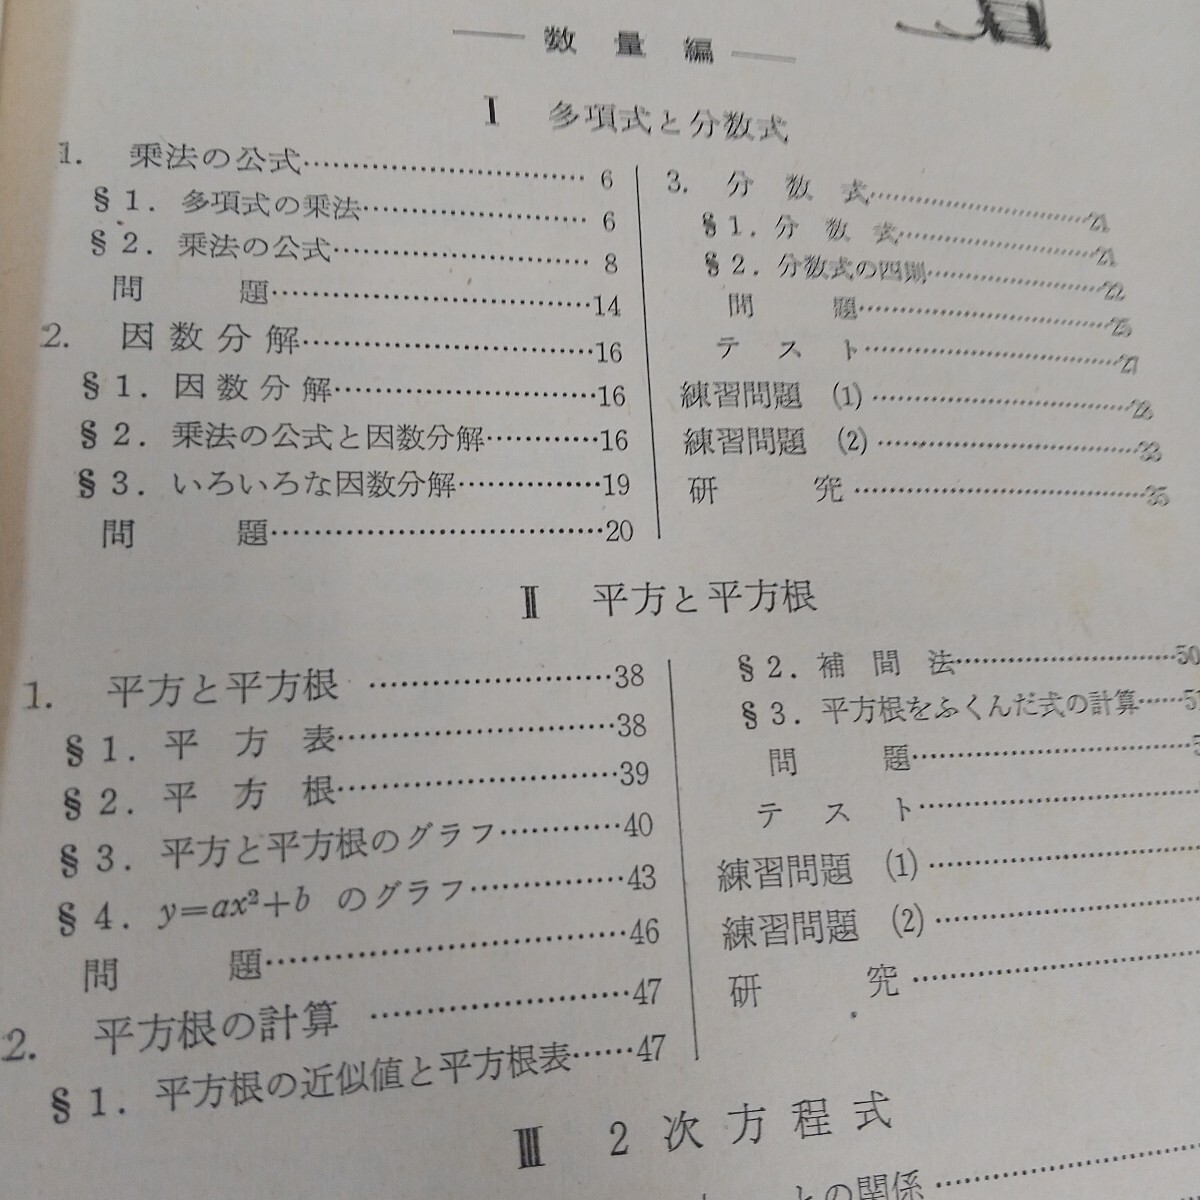 数量編
Ⅰ 多項式と分数式
1. 乗法の公式……6
§1. 多項式の乗法……6
§2. 乗法の公式……8
問題……14
2. 因数分解……16
§1. 因数分解……16
§2. 乗法の公式と因数分解……16
§3. いろいろな因数分解……19
問題……20
3. 分数式……21
§1. 分数式……21
§2. 分数式の四則……22
問題……25
テスト……27
練習問題 (1)……28
練習問題 (2)……33
研究……35
Ⅱ 平方と平方根
1. 平方と平方根……38
§1. 平方表……38
§2. 平方根……39
§3. 平方と平方根のグラフ……40
§4. y=ax²+b のグラフ……43
問題……46
2. 平方根の計算……47
§1. 平方根の近似値と平方根表……47
§2. 補間法……50
§3. 平方根をふくんだ式の計算……5
問題……5
テスト……
練習問題 (1)……
練習問題 (2)……
研究……
Ⅲ 2次方程式
との関係……